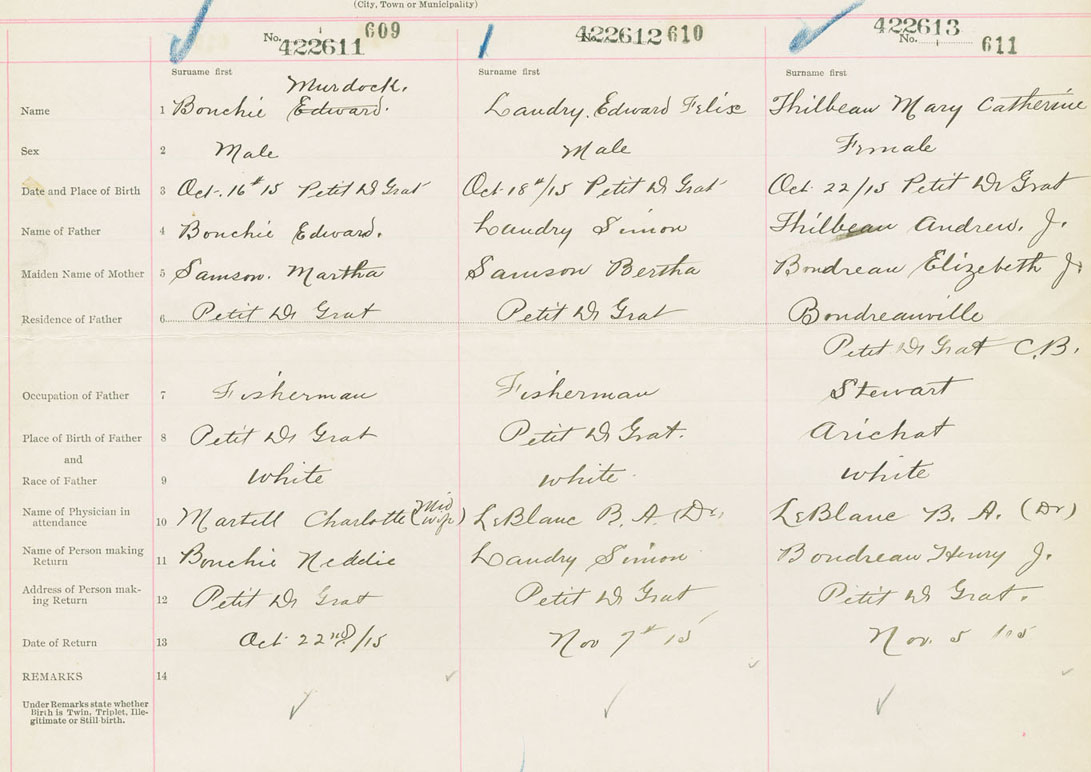 (City, Town or Municipality)
No. 422611 609
No. 422612 610
No. 422613 611
Surname first Surname first Surname first
Murdock.
Name 1 Bouchie Edward. Landry. Edward Felix Thilbeau Mary Catherine
Sex 2 Male Male Female
Date and Place of Birth 3 Oct. 16th 15 Petit De Grat Oct 18th/15 Petit De Grat Oct 22/15 Petit De Grat
Name of Father 4 Bouchie Edward. Landry Simon Thilbeau Andrew. J.
Maiden Name of Mother 5 Samson. Martha Samson Bertha Boudreau Elizebeth J.
Residence of Father 6 Petit De Grat Petit De Grat Boudreauville
Petit De Grat C.B.
Occupation of Father 7 Fisherman Fisherman Stewart
Place of Birth of Father 8 Petit De Grat Petit De Grat. Arichat
and
Race of Father 9 White White White
Name of Physician in attendance 10 Martell Charlotte (Mid wife) LeBlanc B. A. (Dr) LeBlanc B. A. (Dr)
Name of Person making Return 11 Bouchie Neddie Landry Simon Boudreau Henry J.
Address of Person making Return 12 Petit De Grat Petit De Grat Petit De Grat.
Date of Return 13 Oct 22nd/15 Nov 7th 15 Nov. 5
REMARKS 14
Under Remarks state whether
Birth is Twin, Triplet, Ille-
gitimate or Still-birth.